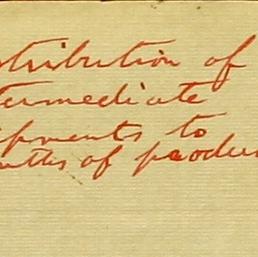 stribution of
termediate
ipments to
nths of produc